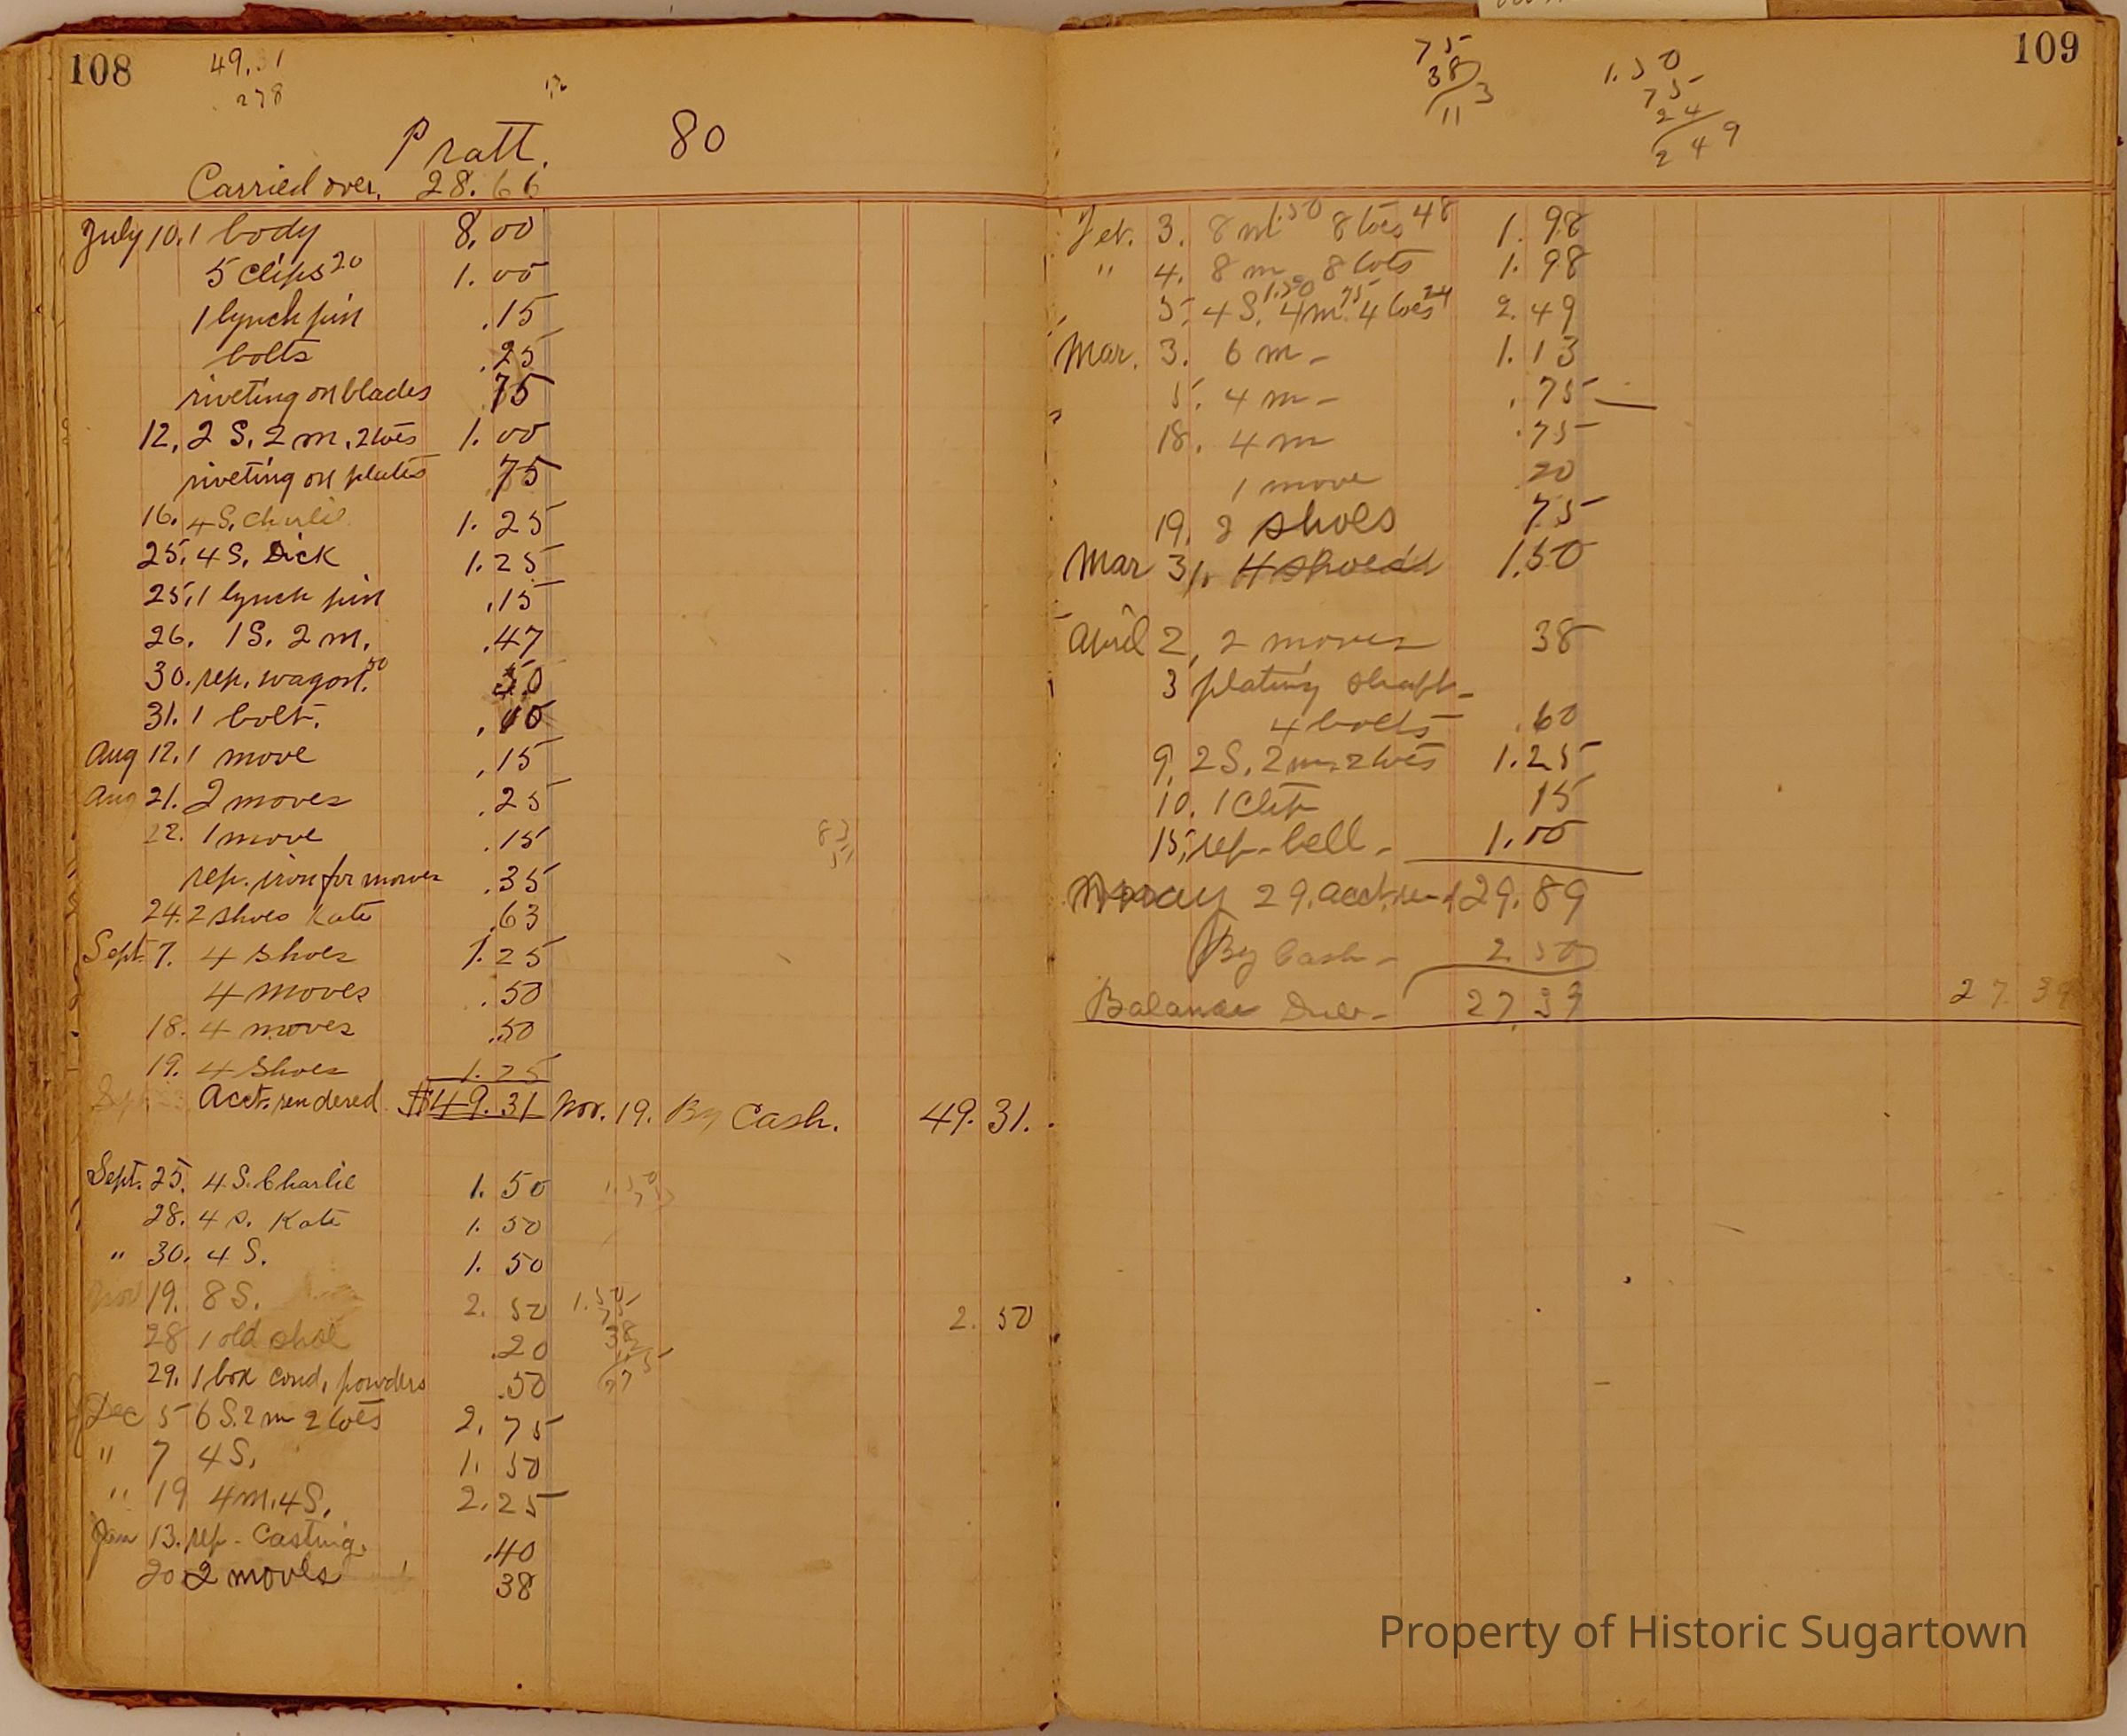 108
49.31
278
Pratt. 80
Carried over. 28.66
July 10. 1 body 8.00
5 clips 20 1.00
1 lynch pin .15
bolts .25
riveting on blades 75
12. 2 S. 2 m. 2 toes 1.00
riveting on plates 75
16. 4 S. Charlie 1.25
25. 4 S. Dick 1.25
25. 1 lynch pin .15
26. 1 S. 2 m. .47
30. rep. wagon. 50 50
31. 1 bolt. .10
Aug 12. 1 move .15
Aug 21. 2 moves .25
22. 1 move .15
rep. iron for mower .35
24. 2 shoes Kate .63
Sept. 7. 4 shoes 1.25
4 moves .50
18. 4 moves .50
19. 4 shoes 1.25
Sept Acct. rendered $49.31 Nov. 19. By Cash. 49.31.
Sept. 25. 4 S. Charlie 1.50
28. 4 S. Kate 1.50
" 30. 4 S. 1.50
Nov 19. 8 S. 2.50 2.50
28 1 old shoe .20
29. 1 box cond. powders .50
Dec 5 6 S. 2 m 2 toes 2.75
" 7 4 S. 1.50
" 19 4 m. 4 S. 2.25
Jan 13. rep. casting. .40
20. 2 moves 38
109
75
38
113
1.50
75
24
249
Feb. 3. 8 m 1.50 8 toes 48 1.98
" 4. 8 m 8 toes 1.98
5. 4 S. 1.50 4 m. 75 4 toes 24 2.49
Mar. 3. 6 m - 1.13
5. 4 m - .75
18. 4 m .75
1 move 20
19. 2 shoes 75
Mar 31. 4 shoes 1.50
April 2, 2 moves 38
3 plating shaft -
4 bolts .60
9. 2 S. 2 m. 2 toes 1.25
10. 1 clip 15
15. rep. bell - 1.00
May 29. acct. rend 29.89
By Cash - 2.50
Balance Due - 27.39 27.39
Property of Historic Sugartown